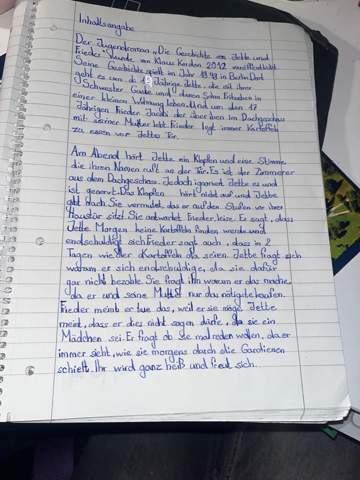 Inhaltsangabe
Der Jugendroman „Die Geschichte von Jette und
Frieder" wurde von Klaus Kordon 2012 veröffentlicht.
Seine Geschichte spielt im Jahr 1848 in Berlin. Dort
geht es um die 15 Jährige Jette, die mit ihrer
Schwester Guste und deren Sohn Fritzchen in
einer kleinen Wohnung leben. Und um den 17
Jährigen Frieder Jacobi der oben im Dachgeschoss
mit seiner Mutter lebt. Frieder legt immer Kartoffeln
zu essen vor Jettes Tür.
Am Abend hört Jette ein Klopfen und eine Stimme
die ihren Namen ruft an der Tür. Es ist der Zimmerer
aus dem Dachgeschoss. Jedoch ignoriert Jette es und
ist genervt. Das Klopfen hört nicht auf und Jette
gibt nach. Sie vermutet, das er auf den Stufen vor ihrer
Haustür sitzt. Sie antwortet Frieder, leise. Er sagt, dass
Jette Morgen keine Kartoffeln finden werde und
endschuldigt sich. Frieder sagt auch, dass in 2
Tagen wieder Kartoffeln da seien. Jette fragt sich
warum er sich endschuldige, da sie dafür
gar nicht bezahle. Sie fragt ihn warum er das mache
da er und seine Mutter nur das nötigste haben.
Frieder meint er tue das, weil er sie möge. Jette
meint, dass er dies nicht sagen dürfe, da sie ein
Mädchen sei. Er fragt ob Sie mal reden wollen, da er
immer sieht, wie sie morgens durch die Gardienen
schielt. Ihr wird ganz heiß und freut sich.